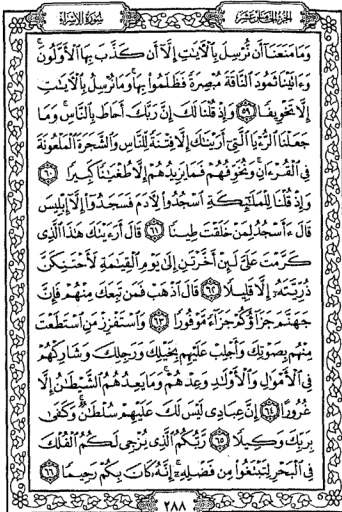 سورة الإسراء
الجزء الخامس عشر
وَمَا مَنَعَنَا أَن نُّرْسِلَ بِالْآيَاتِ إِلَّا أَن كَذَّبَ بِهَا الْأَوَّلُونَ ۚ
وَءَاتَيْنَا ثَمُودَ النَّاقَةَ مُبْصِرَةً فَظَلَمُوا بِهَا ۚ وَمَا نُرْسِلُ بِالْآيَاتِ
إِلَّا تَخْوِيفًا ٥٩ وَإِذْ قُلْنَا لَكَ إِنَّ رَبَّكَ أَحَاطَ بِالنَّاسِ ۚ وَمَا
جَعَلْنَا الرُّءْيَا الَّتِي أَرَيْنَاكَ إِلَّا فِتْنَةً لِّلنَّاسِ وَالشَّجَرَةَ الْمَلْعُونَةَ
فِي الْقُرْءَانِ ۚ وَنُخَوِّفُهُمْ فَمَا يَزِيدُهُمْ إِلَّا طُغْيَانًا كَبِيرًا ٦٠
وَإِذْ قُلْنَا لِلْمَلَائِكَةِ اسْجُدُوا لِآدَمَ فَسَجَدُوا إِلَّا إِبْلِيسَ
قَالَ ءَأَسْجُدُ لِمَنْ خَلَقْتَ طِينًا ٦١ قَالَ أَرَءَيْتَكَ هَٰذَا الَّذِي
كَرَّمْتَ عَلَيَّ لَئِنْ أَخَّرْتَنِ إِلَىٰ يَوْمِ الْقِيَامَةِ لَأَحْتَنِكَنَّ
ذُرِّيَّتَهُ إِلَّا قَلِيلًا ٦٢ قَالَ اذْهَبْ فَمَن تَبِعَكَ مِنْهُمْ فَإِنَّ
جَهَنَّمَ جَزَاؤُكُمْ جَزَاءً مَّوْفُورًا ٦٣ وَاسْتَفْزِزْ مَنِ اسْتَطَعْتَ
مِنْهُم بِصَوْتِكَ وَأَجْلِبْ عَلَيْهِم بِخَيْلِكَ وَرَجِلِكَ وَشَارِكْهُمْ
فِي الْأَمْوَالِ وَالْأَوْلَادِ وَعِدْهُمْ ۚ وَمَا يَعِدُهُمُ الشَّيْطَانُ إِلَّا
غُرُورًا ٦٤ إِنَّ عِبَادِي لَيْسَ لَكَ عَلَيْهِمْ سُلْطَانٌ ۚ وَكَفَىٰ
بِرَبِّكَ وَكِيلًا ٦٥ رَّبُّكُمُ الَّذِي يُزْجِي لَكُمُ الْفُلْكَ
فِي الْبَحْرِ لِتَبْتَغُوا مِن فَضْلِهِ ۚ إِنَّهُ كَانَ بِكُمْ رَحِيمًا ٦٦
٢٨٨